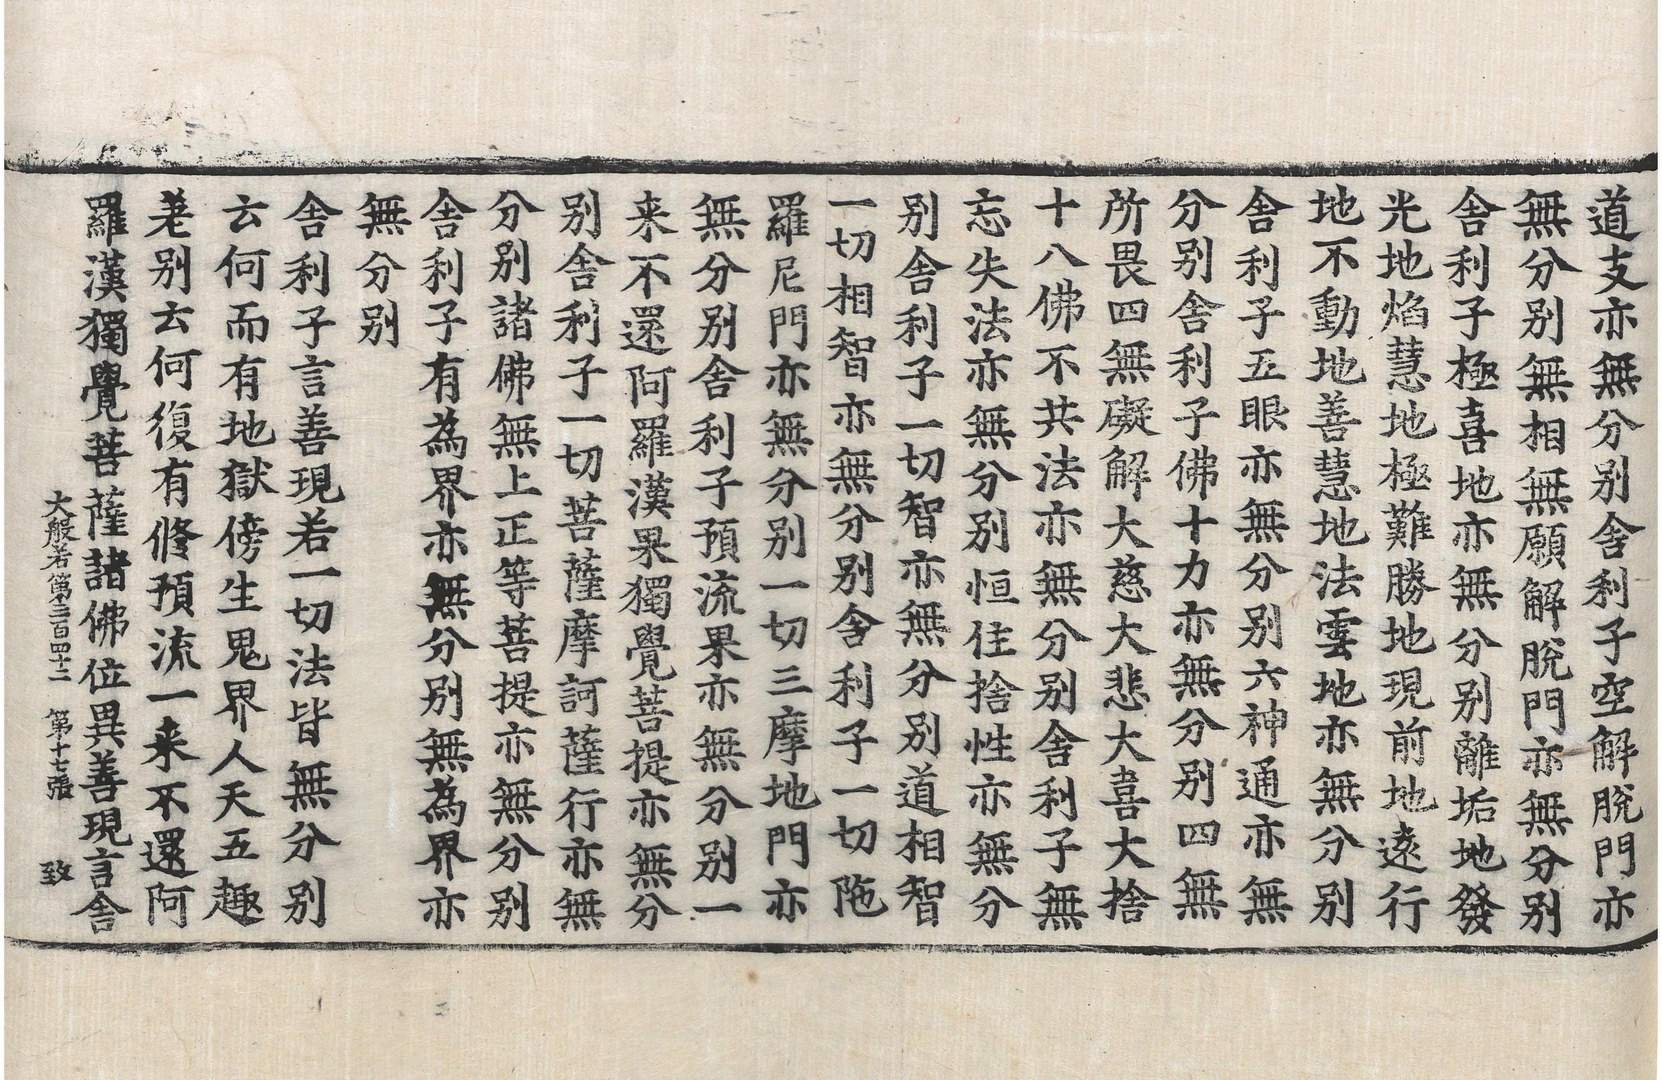 道支亦無分别舍利子空解脫門亦
無分别無相無願解脫門亦無分别
舍利子極喜地亦無分别離垢地發
光地焰慧地極難勝地現前地遠行
地不動地善慧地法雲地亦無分别
舍利子五眼亦無分别六神通亦無
分别舍利子佛十力亦無分别四無
所畏四無礙解大慈大悲大喜大捨
十八佛不共法亦無分别舍利子無
忘失法亦無分别恒住捨性亦無分
别舍利子一切智亦無分别道相智
一切相智亦無分别舍利子一切陁
羅尼門亦無分别一切三摩地門亦
無分别舍利子預流果亦無分别一
来不還阿羅漢果獨覺菩提亦無分
别舍利子一切菩薩摩訶薩行亦無
分别諸佛無上正等菩提亦無分别
舍利子有為界亦無分别無為界亦
無分别
舍利子言善現若一切法皆無分别
云何而有地獄傍生鬼界人天五趣
差别云何復有修預流一来不還阿
羅漢獨覺菩薩諸佛位異善現言舍
大般若第三百四十二　第十七張　致